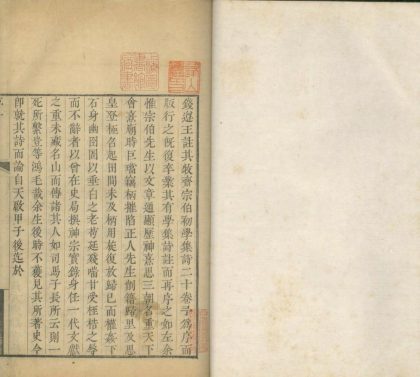 錢遵王註其牧齋宗伯初學集詩二十卷予為序而
版行之旣復卒業其有學集詩註而再序之如左余
惟宗伯先生以文章通顯歷神熹思三朝名重天下
會熹廟時巨璫竊柄摧陷正人先生削籍歸里及思
皇登極名起田間未及柄用旋復放歸已而權姦下
石身幽囹圄以垂白之老苛廷殘喘甘受桎梏之
而不辭者以曾在史局撰神宗實錄身任一代文獻
之重未藏名山而傳諸其人如司馬子長所云則一
死所繫豈等鴻毛哉余生後時不獲見其所著史今
卽就其詩而論自天啟甲子後迄於